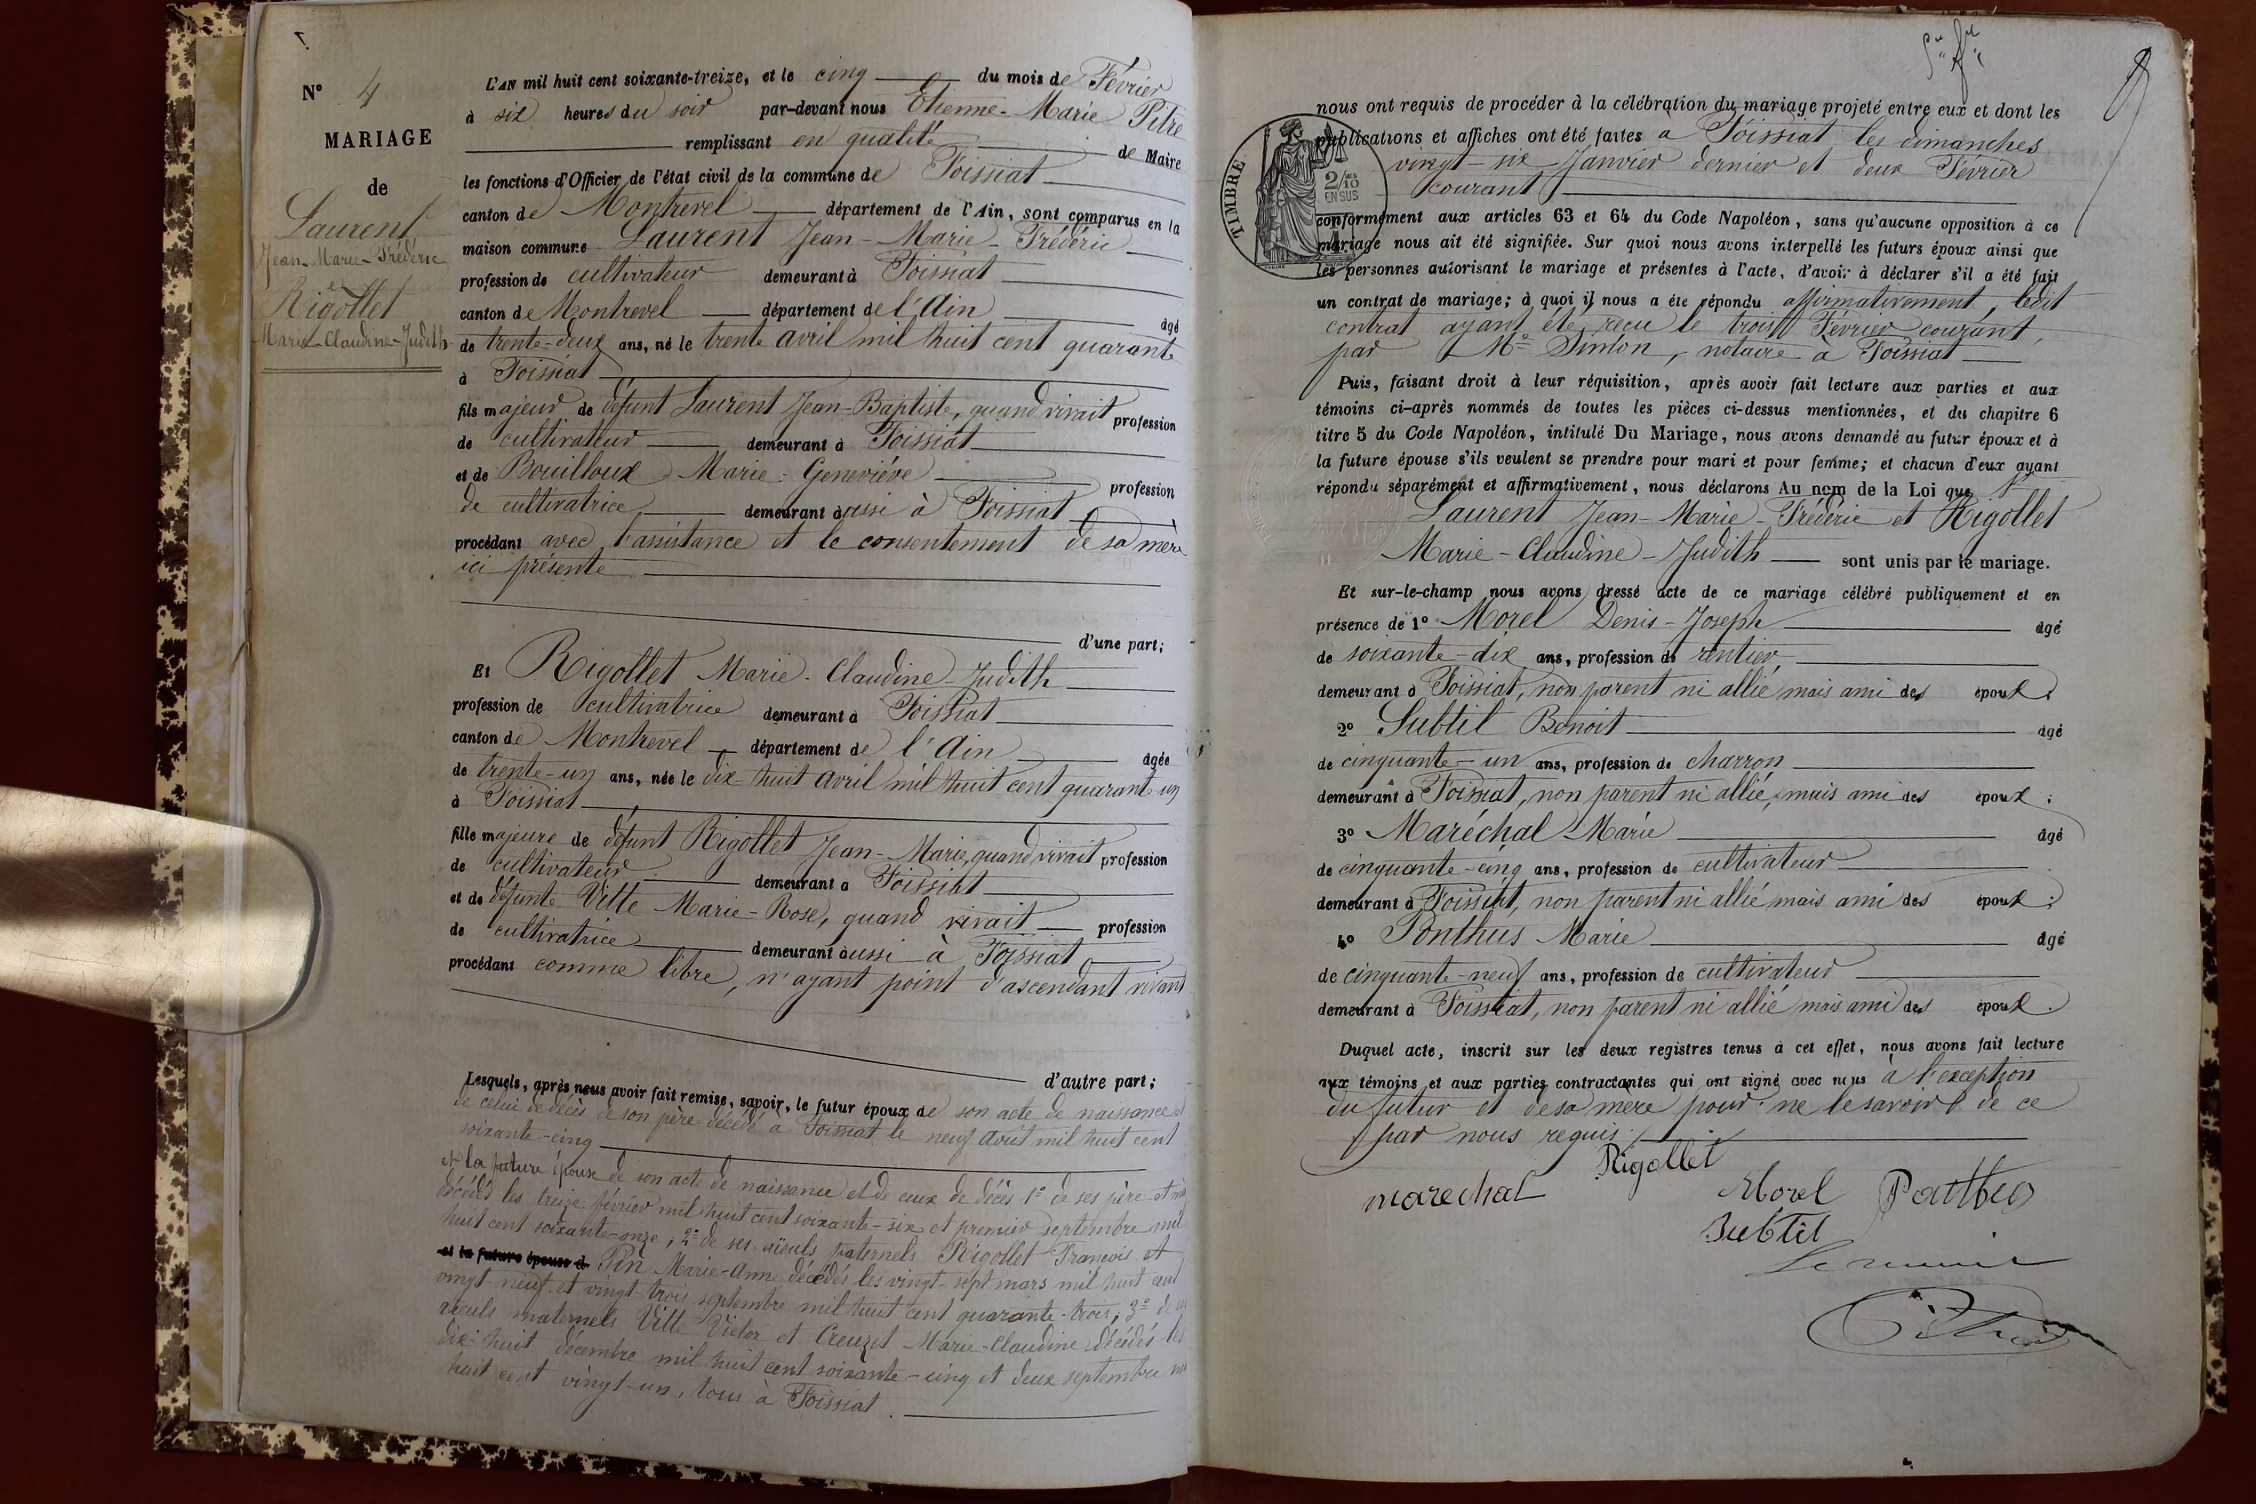 N° 4
MARIAGE
de
Laurent
Jean-Marie-Frédéric
&
Rigollet
Marie-Claudine-Judith
L'AN mil huit cent soixante-treize, et le cinq du mois de Février
à six heures du soir par-devant nous Etienne-Marie Pitre
remplissant en qualité de Maire
les fonctions d'Officier de l'état civil de la commune de Foissiat
canton de Montrevel département de l'Ain, sont comparus en la
maison commune Laurent Jean-Marie-Frédéric
profession de cultivateur demeurant à Foissiat
canton de Montrevel département de l'Ain âgé
de trente-deux ans, né le trente avril mil huit cent quarante
à Foissiat
fils majeur de défunt Laurent Jean-Baptiste, quand vivait profession
de cultivateur demeurant à Foissiat
et de Bouilloux Marie-Geneviève profession
de cultivatrice demeurant aussi à Foissiat
procédant avec l'assistance et le consentement de sa mère
ici présente
d'une part;
Et Rigollet Marie-Claudine-Judith
profession de cultivatrice demeurant à Foissiat
canton de Montrevel département de l'Ain âgée
de trente-un ans, née le dix-huit avril mil huit cent quarante-un
à Foissiat
fille majeure de défunt Rigollet Jean-Marie, quand vivait profession
de cultivateur demeurant à Foissiat
et de défunte Ville Marie-Rose, quand vivait profession
de cultivatrice demeurant aussi à Foissiat
procédant comme libre, n'ayant point d'ascendant vivant
d'autre part;
Lesquels, après nous avoir fait remise, savoir, le futur époux de son acte de naissance et
de celui de décès de son père décédé à Foissiat le neuf août mil huit cent
soixante-cinq
et la future épouse de son acte de naissance et de ceux de décès 1° de ses père et mère
décédés les treize février mil huit cent soixante-six et premier septembre mil
huit cent soixante-onze; 2° de ses aïeuls paternels Rigollet François et
et la future épouse d Pin Marie-Anne décédés les vingt-sept mars mil huit cent
vingt-neuf et vingt-trois septembre mil huit cent quarante-trois; 3° de ses
aïeuls maternels Ville Victor et Creuzet Marie-Claudine décédés les
dix-huit décembre mil huit cent soixante-cinq et deux septembre mil
huit cent vingt-un, tous à Foissiat.
TIMBRE
2/10
EN SUS
nous ont requis de procéder à la célébration du mariage projeté entre eux et dont les
publications et affiches ont été faites à Foissiat les dimanches
vingt-six Janvier dernier et deux Février
courant
conformément aux articles 63 et 64 du Code Napoléon, sans qu'aucune opposition à ce
mariage nous ait été signifiée. Sur quoi nous avons interpellé les futurs époux ainsi que
les personnes autorisant le mariage et présentes à l'acte, d'avoir à déclarer s'il a été fait
un contrat de mariage; à quoi il nous a été répondu affirmativement, ledit
contrat ayant été reçu le trois Février courant,
par Me notaire à Foissiat
Puis, faisant droit à leur réquisition, après avoir fait lecture aux parties et aux
témoins ci-après nommés de toutes les pièces ci-dessus mentionnées, et du chapitre 6
titre 5 du Code Napoléon, intitulé Du Mariage, nous avons demandé au futur époux et à
la future épouse s'ils veulent se prendre pour mari et pour femme; et chacun d'eux ayant
répondu séparément et affirmativement, nous déclarons Au nom de la Loi que
Laurent Jean-Marie-Frédéric et Rigollet
Marie-Claudine-Judith sont unis par le mariage.
Et sur-le-champ nous avons dressé acte de ce mariage célébré publiquement et en
présence de 1° Morel Denis-Joseph âgé
de soixante-dix ans, profession de rentier
demeurant à Foissiat, non parent ni allié mais ami des époux;
2° Subtil Benoit âgé
de cinquante-un ans, profession de charron
demeurant à Foissiat, non parent ni allié, mais ami des époux;
3° Maréchal Marie âgé
de cinquante-cinq ans, profession de cultivateur
demeurant à Foissiat, non parent ni allié mais ami des époux;
4° Ponthus Marie âgé
de cinquante-neuf ans, profession de cultivateur
demeurant à Foissiat, non parent ni allié mais ami des époux.
Duquel acte, inscrit sur les deux registres tenus à cet effet, nous avons fait lecture
aux témoins et aux parties contractantes qui ont signé avec nous à l'exception
du futur et de sa mère pour ne le savoir de ce
par nous requis.
Rigollet
marechal Morel Ponthus
Subtil
Le maire
Pitre